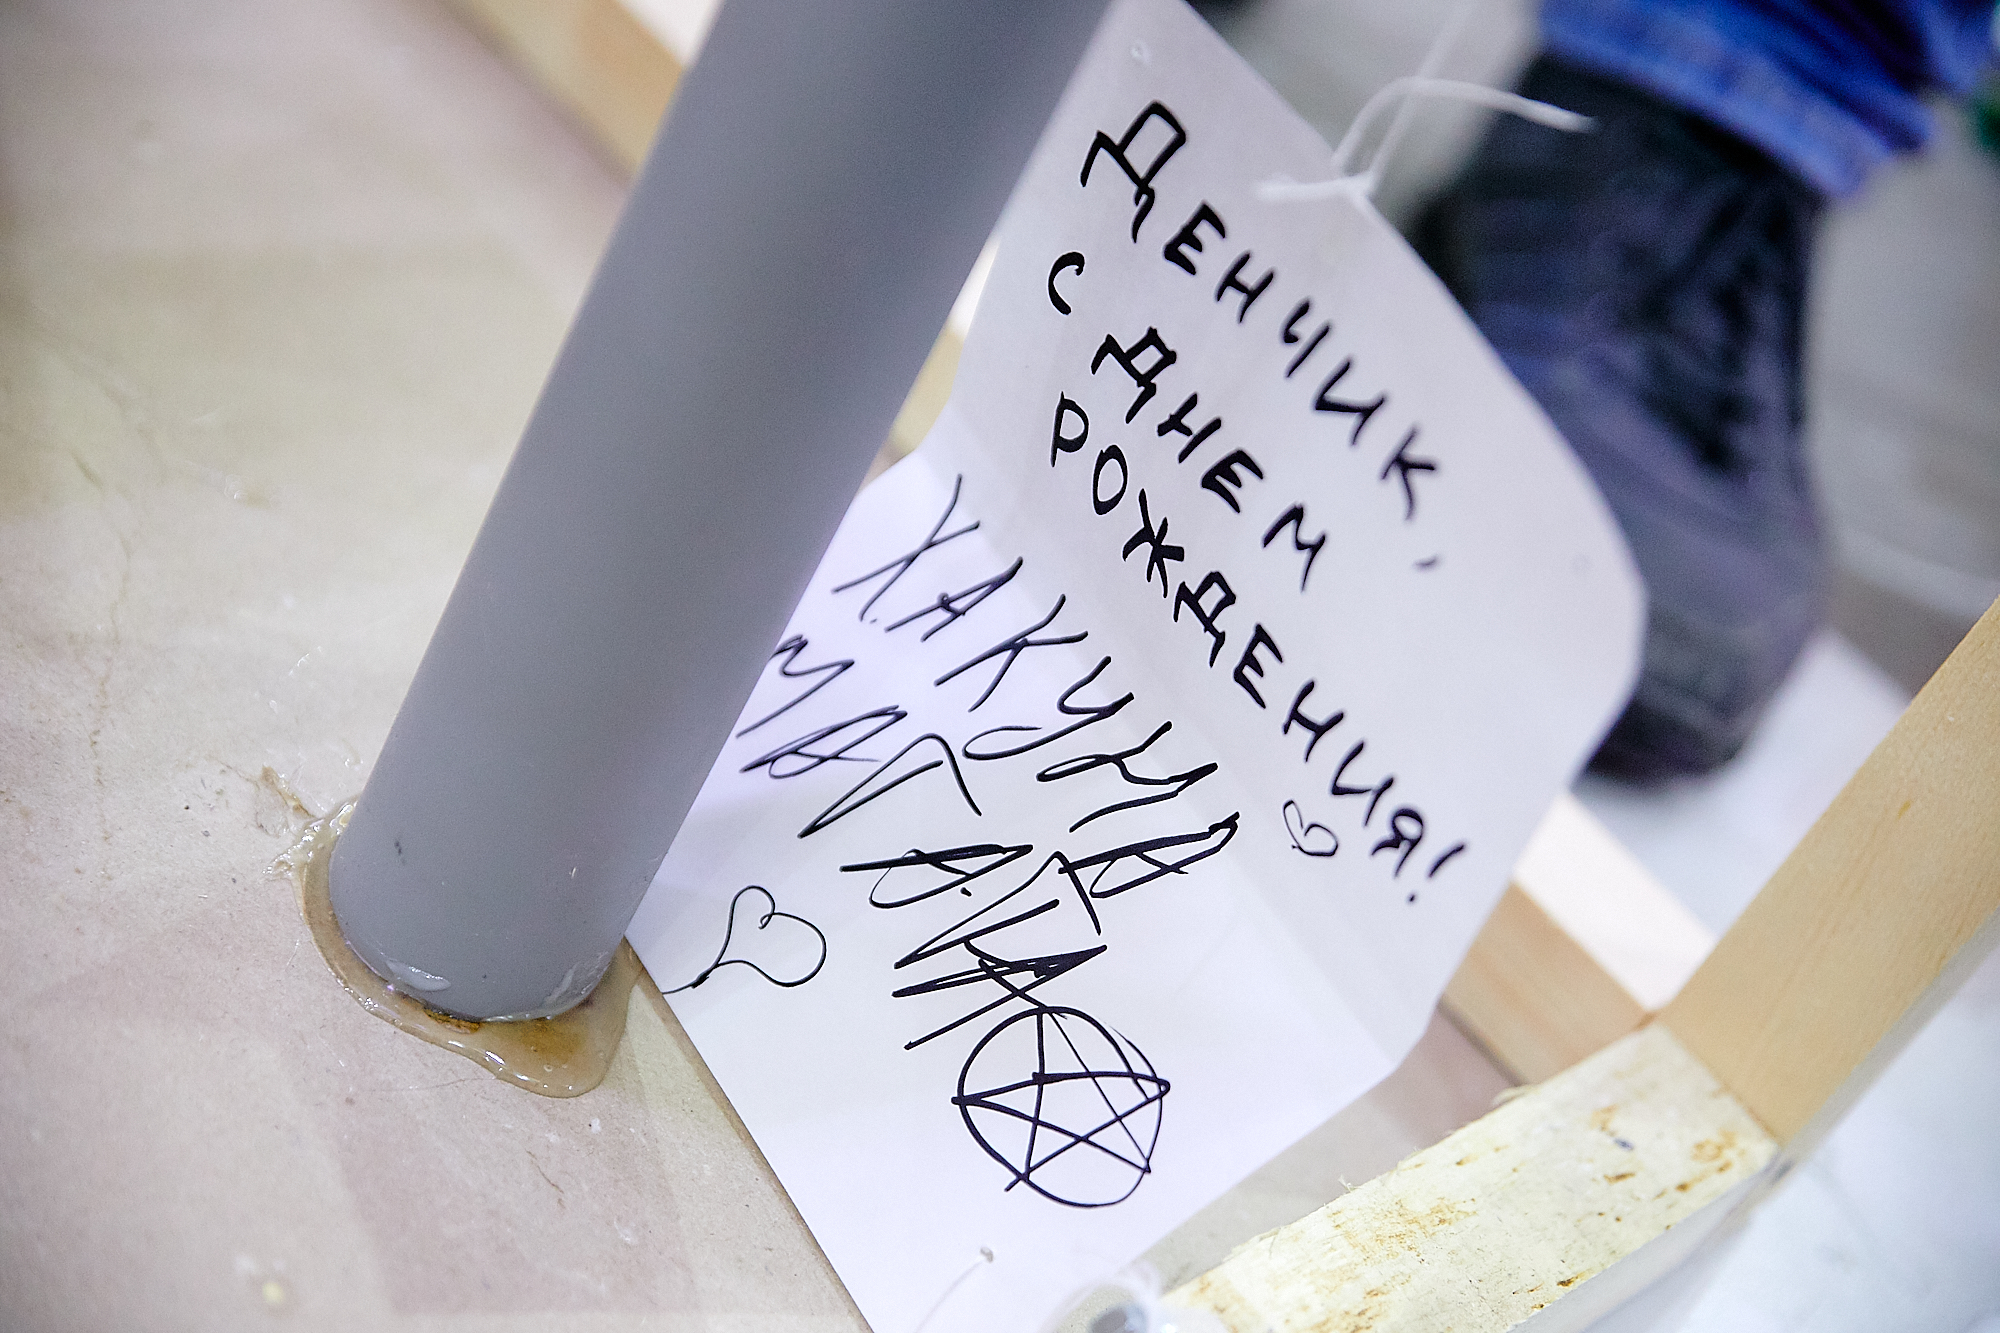 ДЕНЧИК,
С ДНЕМ
РОЖДЕНИЯ!
ХАКУНА
МАТАТА